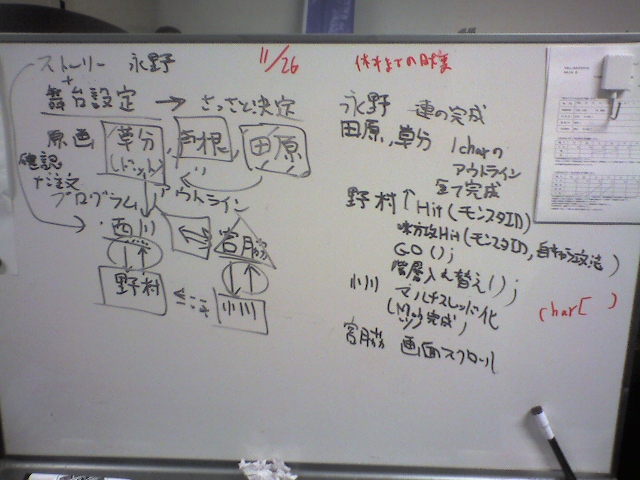 ストーリー 永野
+
舞台設定 → さっさと決定
11/26
原画 草分 (ドット), 戸根, 田原
確認
+注文
プログラム アウトライン
・西川
宮脇
野村
小川
休みまでの
永野 連の完成
田原, 草分 1charの
アウトライン
全て完成
野村 ↑ Hit(モンスタID)
味方攻Hit(モンスタID,
GO();
階層入れ替え();
小川 マルチスレッド化
完成,
char[ )
宮脇 画面スクロール